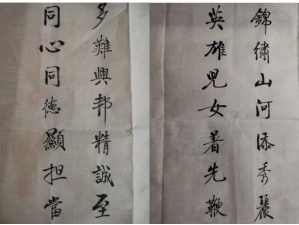 錦繡山河添秀麗
英雄兒女著先鞭
多難興邦精誠至
同心同德顯擔當